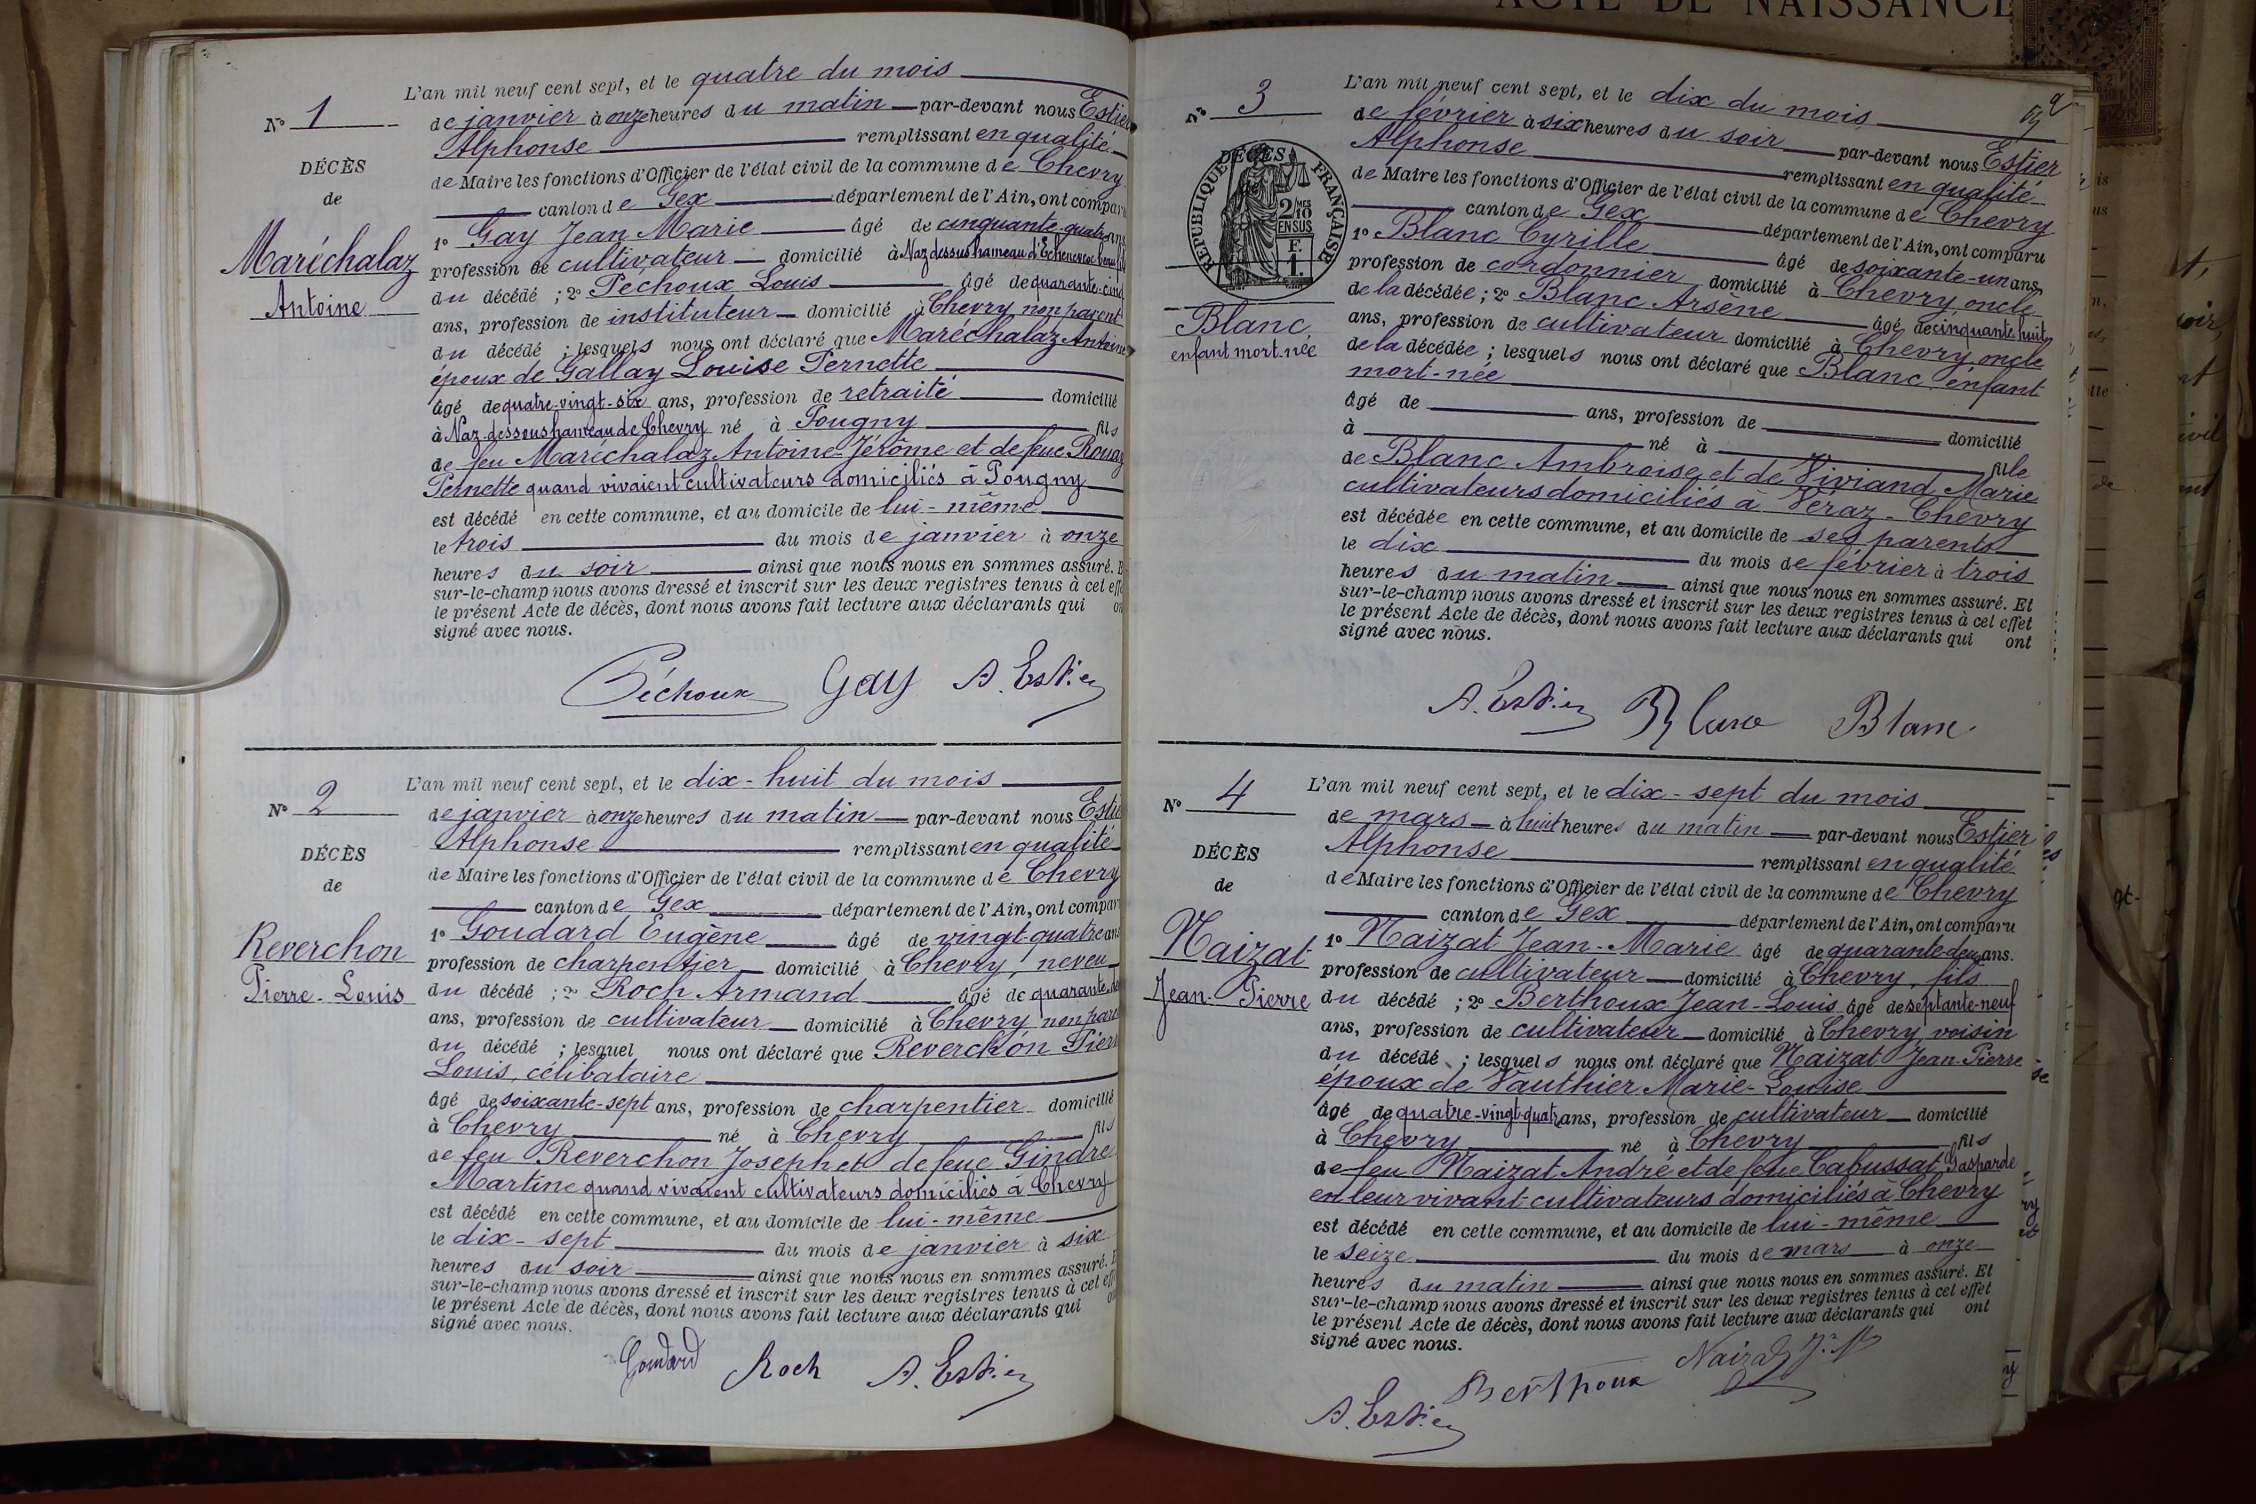 ACTE DE NAISSANCE
L'an mil neuf cent sept, et le quatre du mois
N° 1
de janvier à onze heures du matin par-devant nous Estier
Alphonse remplissant en qualité
DÉCÈS
de Maire les fonctions d'Officier de l'état civil de la commune de Chevry
de
canton de Gex département de l'Ain, ont comparu
1° Gay Jean Marie âgé de cinquante-quatre ans
Maréchalaz
Antoine
profession de cultivateur domicilié à Naz dessus hameau d'Echenevex
du décédé ; 2° Péchoux Louis âgé de quarante-cinq
ans, profession de instituteur domicilié à Chevry non parent
du décédé ; lesquels nous ont déclaré que Maréchalaz Antoine
époux de Gallay Louise Pernette
âgé de quatre-vingt-six ans, profession de retraité domicilié
à Naz-dessous hameau de Chevry né à Pougny fils
de feu Maréchalaz Antoine-Jérôme et de feue
Pernette quand vivaient cultivateurs domiciliés à Pougny
est décédé en cette commune, et au domicile de lui-même
le trois du mois de janvier à onze
heures du soir ainsi que nous nous en sommes assuré. E
sur-le-champ nous avons dressé et inscrit sur les deux registres tenus à cet effe
le présent Acte de décès, dont nous avons fait lecture aux déclarants qui on
signé avec nous.
Péchoux Gay A. Estier
L'an mil neuf cent sept, et le dix-huit du mois
N° 2
de janvier à onze heures du matin par-devant nous Estie
Alphonse remplissant en qualité
DÉCÈS
de Maire les fonctions d'Officier de l'état civil de la commune de Chevry
de
canton de Gex département de l'Ain, ont compar
Reverchon
Pierre-Louis
1° Goudard Eugène âgé de vingt-quatre ans
profession de charpentier domicilié à Chevry, neveu
du décédé ; 2° Roch Armand âgé de quarante
ans, profession de cultivateur domicilié à Chevry, non pare
du décédé ; lesquel nous ont déclaré que Reverchon Pierr
Louis, célibataire
âgé de soixante-sept ans, profession de charpentier domicilié
à Chevry né à Chevry fils
de feu Reverchon Joseph et de feue Gindre
Martine quand vivaient cultivateurs domiciliés à Chevry
est décédé en cette commune, et au domicile de lui-même
le dix-sept du mois de janvier à six
heures du soir ainsi que nous nous en sommes assuré. E
sur-le-champ nous avons dressé et inscrit sur les deux registres tenus à cet eff
le présent Acte de décès, dont nous avons fait lecture aux déclarants qui on
signé avec nous.
Goudard Roch A. Estier
L'an mil neuf cent sept, et le dix du mois
N° 3
de février à six heures du soir par-devant nous Estier
Alphonse remplissant en qualité
DÉCÈS
RÉPUBLIQUE FRANÇAISE
2/10 EN SUS
F.
1.
de Maire les fonctions d'Officier de l'état civil de la commune de Chevry
canton de Gex département de l'Ain, ont comparu
1° Blanc Cyrille âgé de soixante-un ans,
profession de cordonnier domicilié à Chevry oncle
Blanc
enfant mort-née
de la décédée ; 2° Blanc Arsène âgé de cinquante huit
ans, profession de cultivateur domicilié à Chevry, oncle
de la décédée ; lesquels nous ont déclaré que Blanc enfant
mort-née
âgé de ans, profession de domicilié
à né à fille
de Blanc Ambroise et de Viviand Marie
cultivateurs domiciliés à Véraz-Chevry
est décédée en cette commune, et au domicile de ses parents
le dix du mois de février à trois
heures du matin ainsi que nous nous en sommes assuré. Et
sur-le-champ nous avons dressé et inscrit sur les deux registres tenus à cet effet
le présent Acte de décès, dont nous avons fait lecture aux déclarants qui ont
signé avec nous.
A. Estier Blanc Blanc
L'an mil neuf cent sept, et le dix-sept du mois
N° 4
de mars à huit heures du matin par-devant nous Estier
Alphonse remplissant en qualité
DÉCÈS
de Maire les fonctions d'Officier de l'état civil de la commune de Chevry
de
canton de Gex département de l'Ain, ont comparu
Naizat
Jean-Pierre
1° Naizat Jean-Marie âgé de quarante-deux ans.
profession de cultivateur domicilié à Chevry, fils
du décédé ; 2° Berthoux Jean-Louis âgé de septante-neuf
ans, profession de cultivateur domicilié à Chevry, voisin
du décédé ; lesquels nous ont déclaré que Naizat Jean-Pierre
époux de Vauthier Marie-Louise
âgé de quatre-vingt-quatre ans, profession de cultivateur domicilié
à Chevry né à Chevry fils
de feu Naizat André et de feue Cabussat Gasparde
en leur vivant cultivateurs domiciliés à Chevry
est décédé en cette commune, et au domicile de lui-même
le seize du mois de mars à onze
heures du matin ainsi que nous nous en sommes assuré. Et
sur-le-champ nous avons dressé et inscrit sur les deux registres tenus à cet effet
le présent Acte de décès, dont nous avons fait lecture aux déclarants qui ont
signé avec nous.
A. Estier Berthoux Naizat J. M